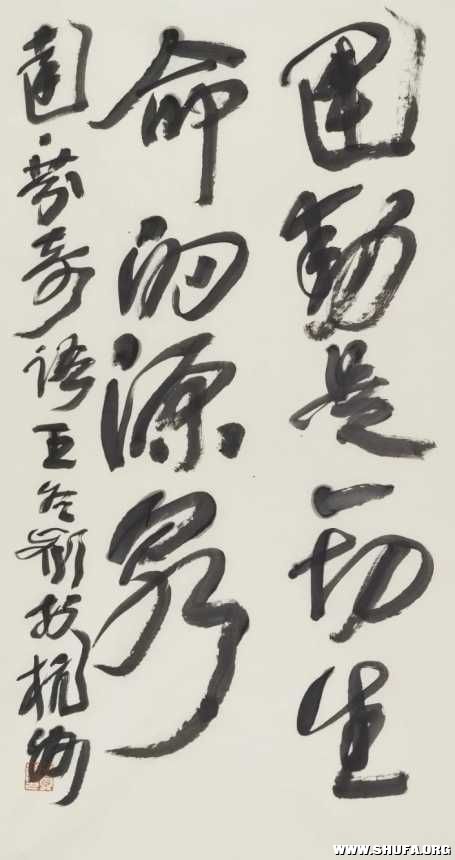 運動是一切生
命的源泉
達·芬奇語 王冬齡於杭州
WWW.SHUFA.ORG